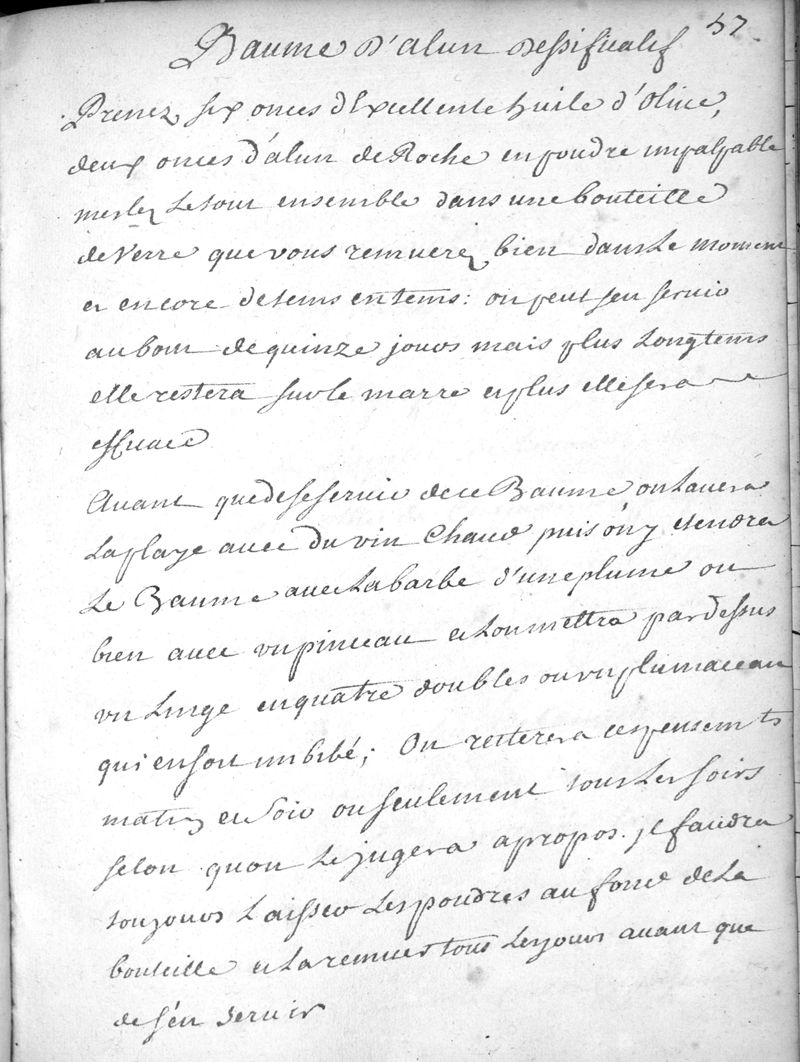 57
Baume d'alun dessificatif
Prenez six onces d'Excellente huile d'Olive,
deux onces d'alun de Roche en poudre impalpable
meslez le tout ensemble dans une bouteille
de Verre que vous remuerez bien dans le moment
et encore de tems en tems : on peut sen servir
au bout de quinze jours mais plus Longtems
elle restera sur le marre et plus elle sera
efficace
Avant que de se servir de ce Baume on Lavera
La playe avec du vin Chaud puis on y etendra
Le Baume avec La barbe d'une plume ou
bien avec un pinceau et Lon mettra par dessus
un Linge en quatre doubles ou un plumaceau
qui en soit imbibé ; On reiterera ces pensemts
matin et Soir ou seulement tous Les soirs
selon quon Le jugera apropos. jl faudra
toujours Laisser Les poudres au fond de La
bouteille et La remuer tous Les jours avant que
de s'en servir